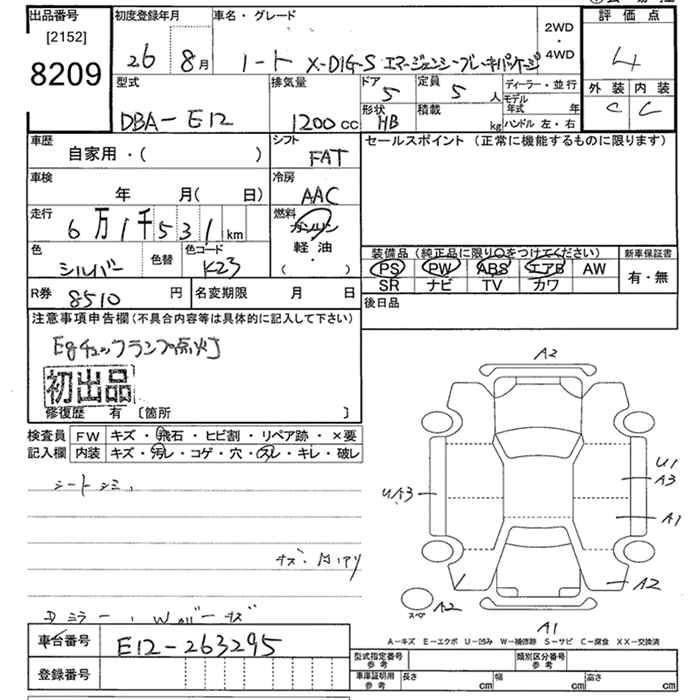 出品番号
[2152]
8209
初度登録年月
26 8月
車名・グレード
ノート X-DIG-S エマージェンシーブレーキパッケージ
2WD
・
4WD
評価点
4
外装 内装
C C
型式
DBA-E12
排気量
1200cc
ドア
5
形状
HB
定員
5人
積載
kg
ディーラー・並行
モデル年式 年
ハンドル 左・右
車歴
自家用・( )
シフト
FAT
セールスポイント (正常に機能するものに限ります)
車検
年 月( 日)
冷房
AAC
走行
6万1千531km
燃料
ガソリン
軽油
( )
色
シルバー
色替
色コード
K23
装備品(純正品に限り○をつけてください)
PS PW ABS エアB AW
SR ナビ TV カワ
新車保証書
有・無
R券 8510円
名変期限 月 日
後日品
注意事項申告欄(不具合内容等は具体的に記入して下さい)
Egチェックランプ点灯
初出品
修復歴 有 〔箇所 〕
検査員
記入欄
FW キズ・飛石・ヒビ割・リペア跡・×要
内装 キズ・汚レ・コゲ・穴・スレ・キレ・破レ
シートシミ、
A2
UA3
U1
A3
A1
A2
スペア
A2
A1
A-キズ E-エクボ U-凹み W-補修跡 S-サビ C-腐食 XX-交換済
車台番号 E12-263295
登録番号
型式指定番号
参考
類別区分番号
参考
車庫証明用
参考
長さ cm
幅 cm
高さ cm